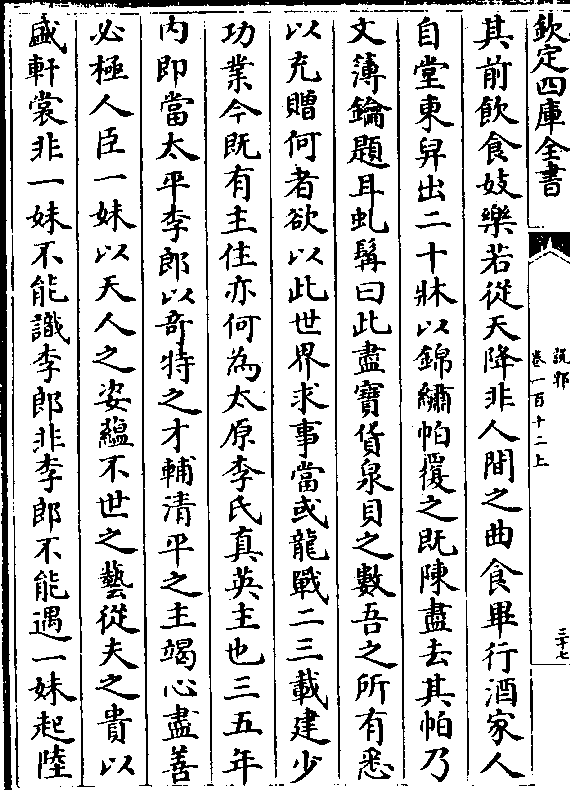 欽定四庫全書
說郛
卷一百十二上
三十七
其前飲食妓樂若從天降非人間之曲食畢行酒家人
自堂東舁出二十牀以錦繡帕覆之既陳盡去其帕乃
文簿鑰題耳虬髯曰此盡寶貨泉貝之數吾之所有悉
以充贈何者欲以此世界求事當或龍戰二三載建少
功業今既有主住亦何為太原李氏真英主也三五年
內即當太平李郎以竒特之才輔清平之主竭心盡善
必極人臣一妹以天人之姿藴不世之藝從夫之貴以
盛軒裳非一妹不能識李郎非李郎不能遇一妹起陸